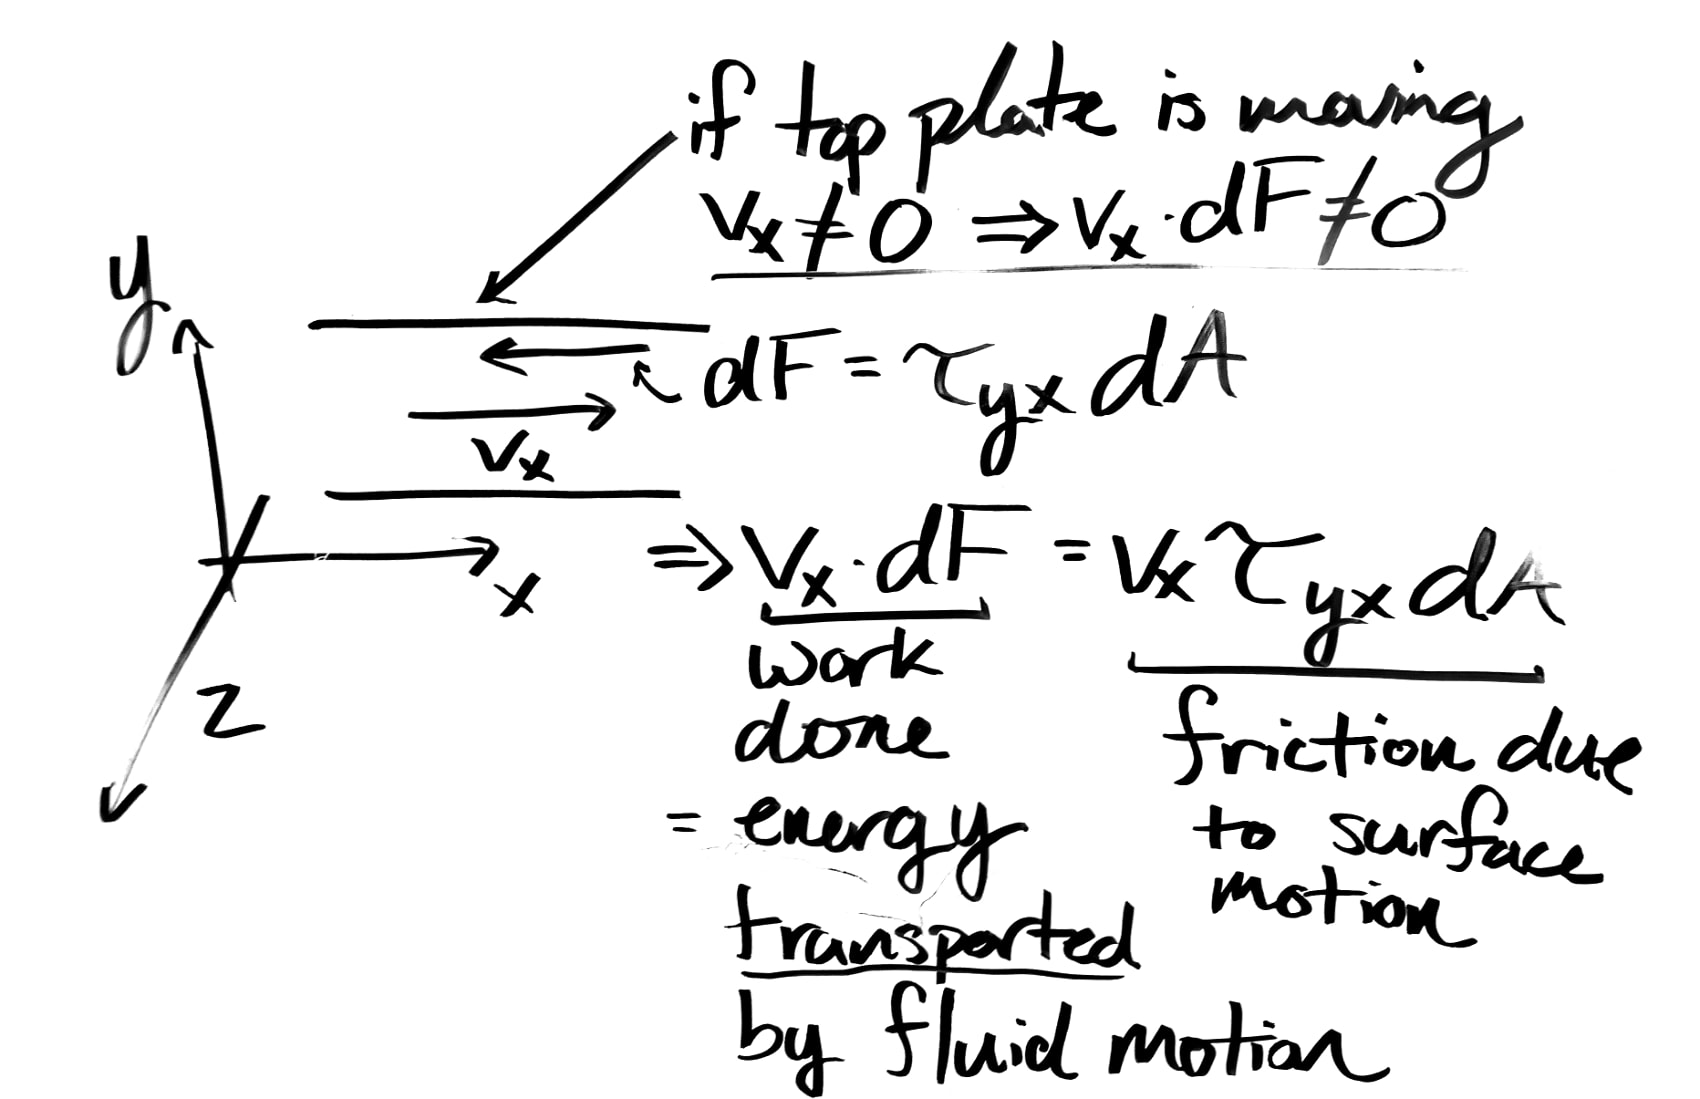 if top plate is moving
vₓ ≠ 0 ⇒ vₓ · dF ≠ 0
y
dF = τyx dA
vₓ
x
z
⇒ vₓ · dF = vₓ τyx dA
work
done
= energy
transported
by fluid motion
friction due
to surface
motion